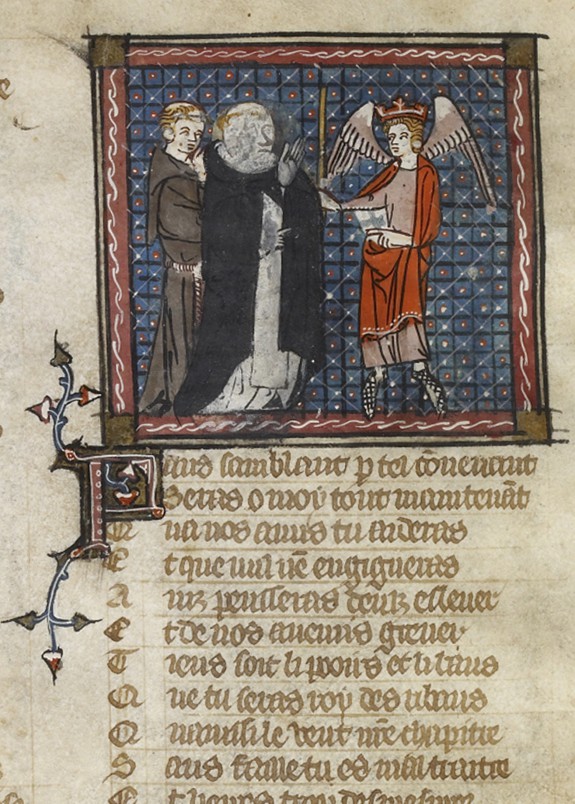 Faus samblant p tel couuenant
Seras o moy tout maintenāt
Q ua nos amis tu aideras
E t que nul nē engigneras
A inz penseras deulz esleuer
E t de nos anemis greuer
T iens soit li pooirs et li baus
Q ue tu seras roy des ribaus
Q uainssi le veut nr̄e chapitre
S ans faille tu es mal traitre
E t lierres trop desmesurez